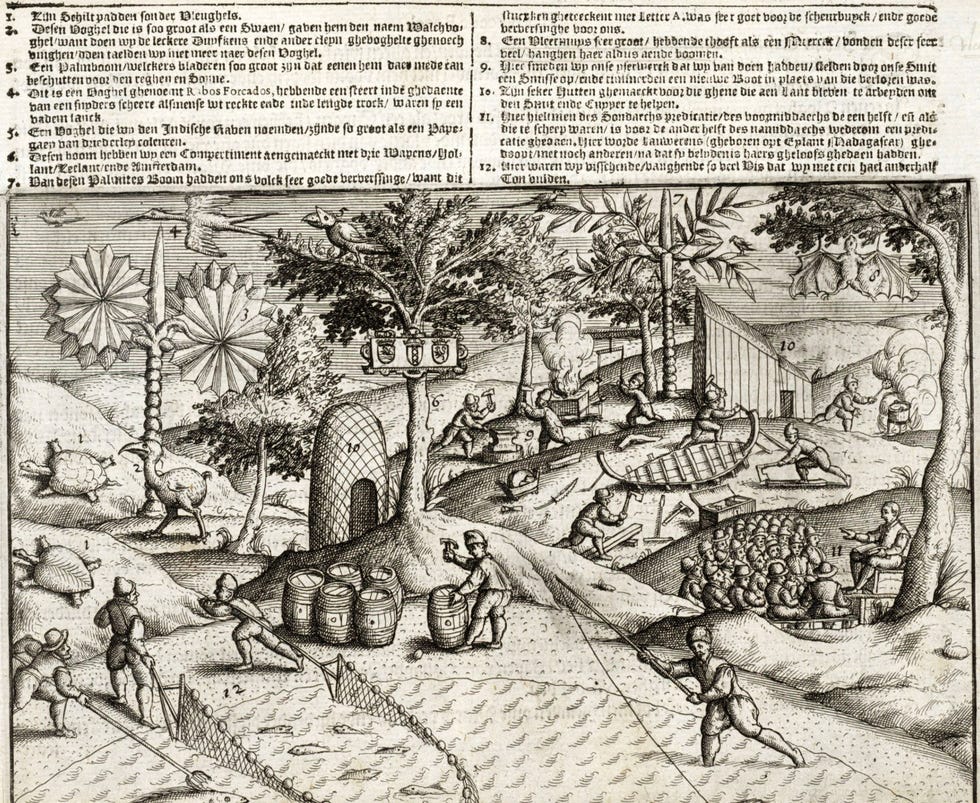 1. Zijn Schiltpadden sonder Vleughels.
2. Desen Voghel die is soo groot als een Swaen/ gaven hem den naem Walchvo-
ghel/want doen wy de leckere Duyfkens ende ander cleyn ghevoghelte ghenoech
vinghen/doen taelden wy niet meer naer desen Voghel.
3. Een Palmboom/welckers bladeren soo groot zijn dat eenen hem daer mede can
beschutten voor den reghen en Sonne.
4. Dit is een Voghel ghenoemt Rabos Forcados, hebbende een steert inde ghedaente
van een snyders scheere alsmense wt reckt ende inde lengde trock/ waren sy een
vadem lanck
5. Een Voghel die wy den Indische Raven noemden/zijnde so groot als een Pape-
gaey van driederley coleuren.
6. Desen boom hebben wy een Compertiment aengemaeckt met drie Wapens/Hol-
lant/Zeelant/ende Amsterdam.
7. Van desen Palmites Boom hadden ons volck seer goede ververssinge/want dit
stucxken gheteeckent met Letter A. was seer goet voor de scheurbuyck/ende goede
ververssinghe voor ons.
8. Een Vleermuys seer groot/ hebbende thooft als een Meerkat/ vonden deser seer
veel/ hanghen haer aldus aende boomen.
9. Hier smeden wy onse yserwerck dat wy van doen hadden/ stelden door onse Smit
een Smisse op/ende timmerden een nieuwe Boot in plaets van die verloren was.
10. Zijn seker Hutten ghemaeckt voor die ghene die aen Lant bleven te arbeyden om
den Smit ende Cuyper te helpen.
11. Hier hielmen des Sondaechs predicatie/des voormiddaechs de een helft/ en als
die te scheep waren/ is voor de ander helft des namiddaechs wederom een predi-
catie ghedaen. Hier worde Lauwerens (gheboren opt Eylant Madagascar) ghe-
doopt/met noch anderen/na dat sy belydenis haers gheloofs ghedaen hadden.
12. Hier waren wy visschende/vanghende so veel Vis dat wy met een hael anderhalf
Ton vulden.
4
7
3
8
10
6
1
2
10
9
11
1
12